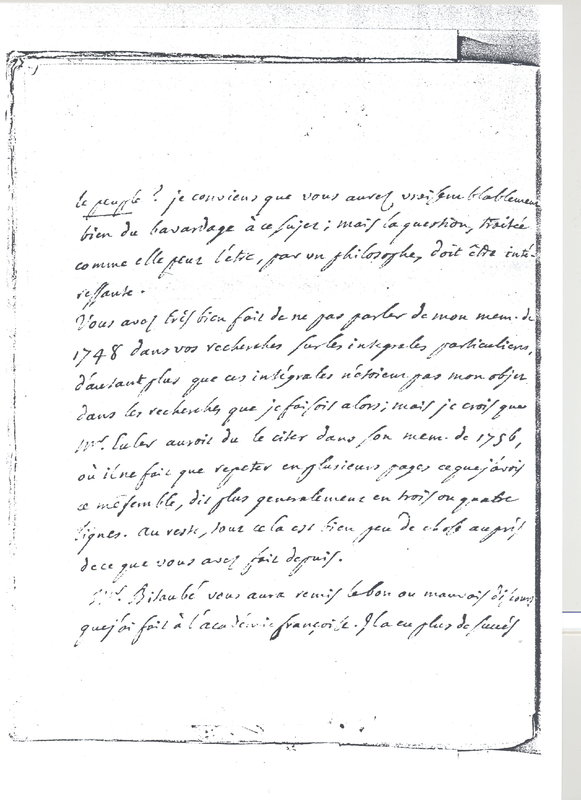 le peuple ? je conviens que vous aurez vraisemblablement
bien du bavardage à ce sujet ; mais la question, traitée
comme elle peut l'être, par un philosophe, doit être inté-
ressante.
Vous avez très bien fait de ne pas parler de mon mem. de
1748 dans vos recherches sur les integrales particulieres,
d'autant plus que ces intégrales n'étoient pas mon objet
dans les recherches que je faisois alors ; mais je crois que
Mr. Euler auroit du le citer dans son mem. de 1756,
où il ne fait que repeter en plusieurs pages ce que j'avois
ce me semble, dit plus generalement en trois ou quatre
lignes. au reste, tout cela est bien peu de chose auprès
de ce que vous avez fait depuis.
Mr. Bitaubé vous aura remis le bon ou mauvais discours
que j'ai fait à l'académie françoise. Il a eu plus de succès